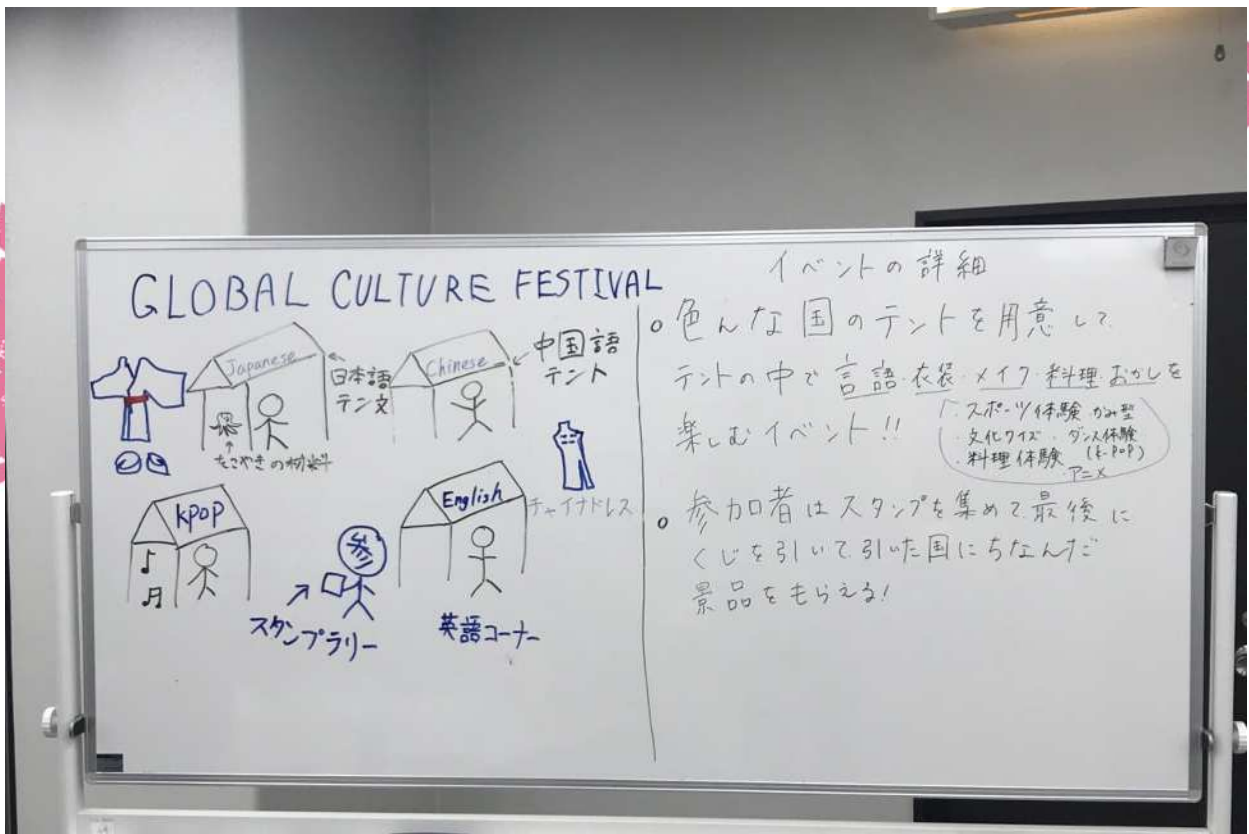 GLOBAL CULTURE FESTIVAL
Japanese
日本語
テン文
たこやきの材料
Chinese
中国語
テント
チャイナドレス
kpop
参
スタンプラリー
English
英語コーナー
イベントの詳細
色んな国のテントを用意して
テントの中で言語・衣装・メイク・料理・おかしを
楽しむイベント!!
・スポーツ体験 かみ型
・文化クイズ・ダンス体験
(k-POP)
・料理体験
・アニメ
参加者はスタンプを集めて最後に
くじを引いて引いた国にちなんだ
景品をもらえる!